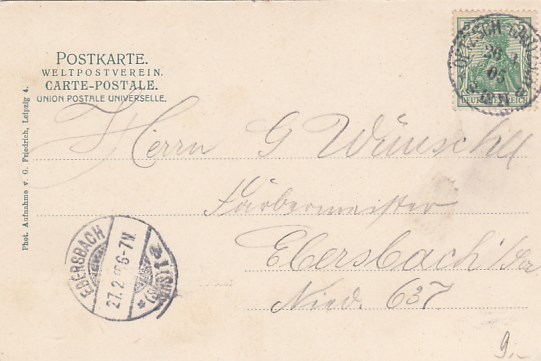 POSTKARTE.
WELTPOSTVEREIN.
CARTE-POSTALE.
UNION POSTALE UNIVERSELLE.
Phot. Aufnahme v. G. Friedrich, Leipzig 4.
DEUTSCHES REICH
Herrn G Wünsche
Färbermeister
Ebersbach
Nied. 637
EBERSBACH
27.2. 6-7N.
9.-